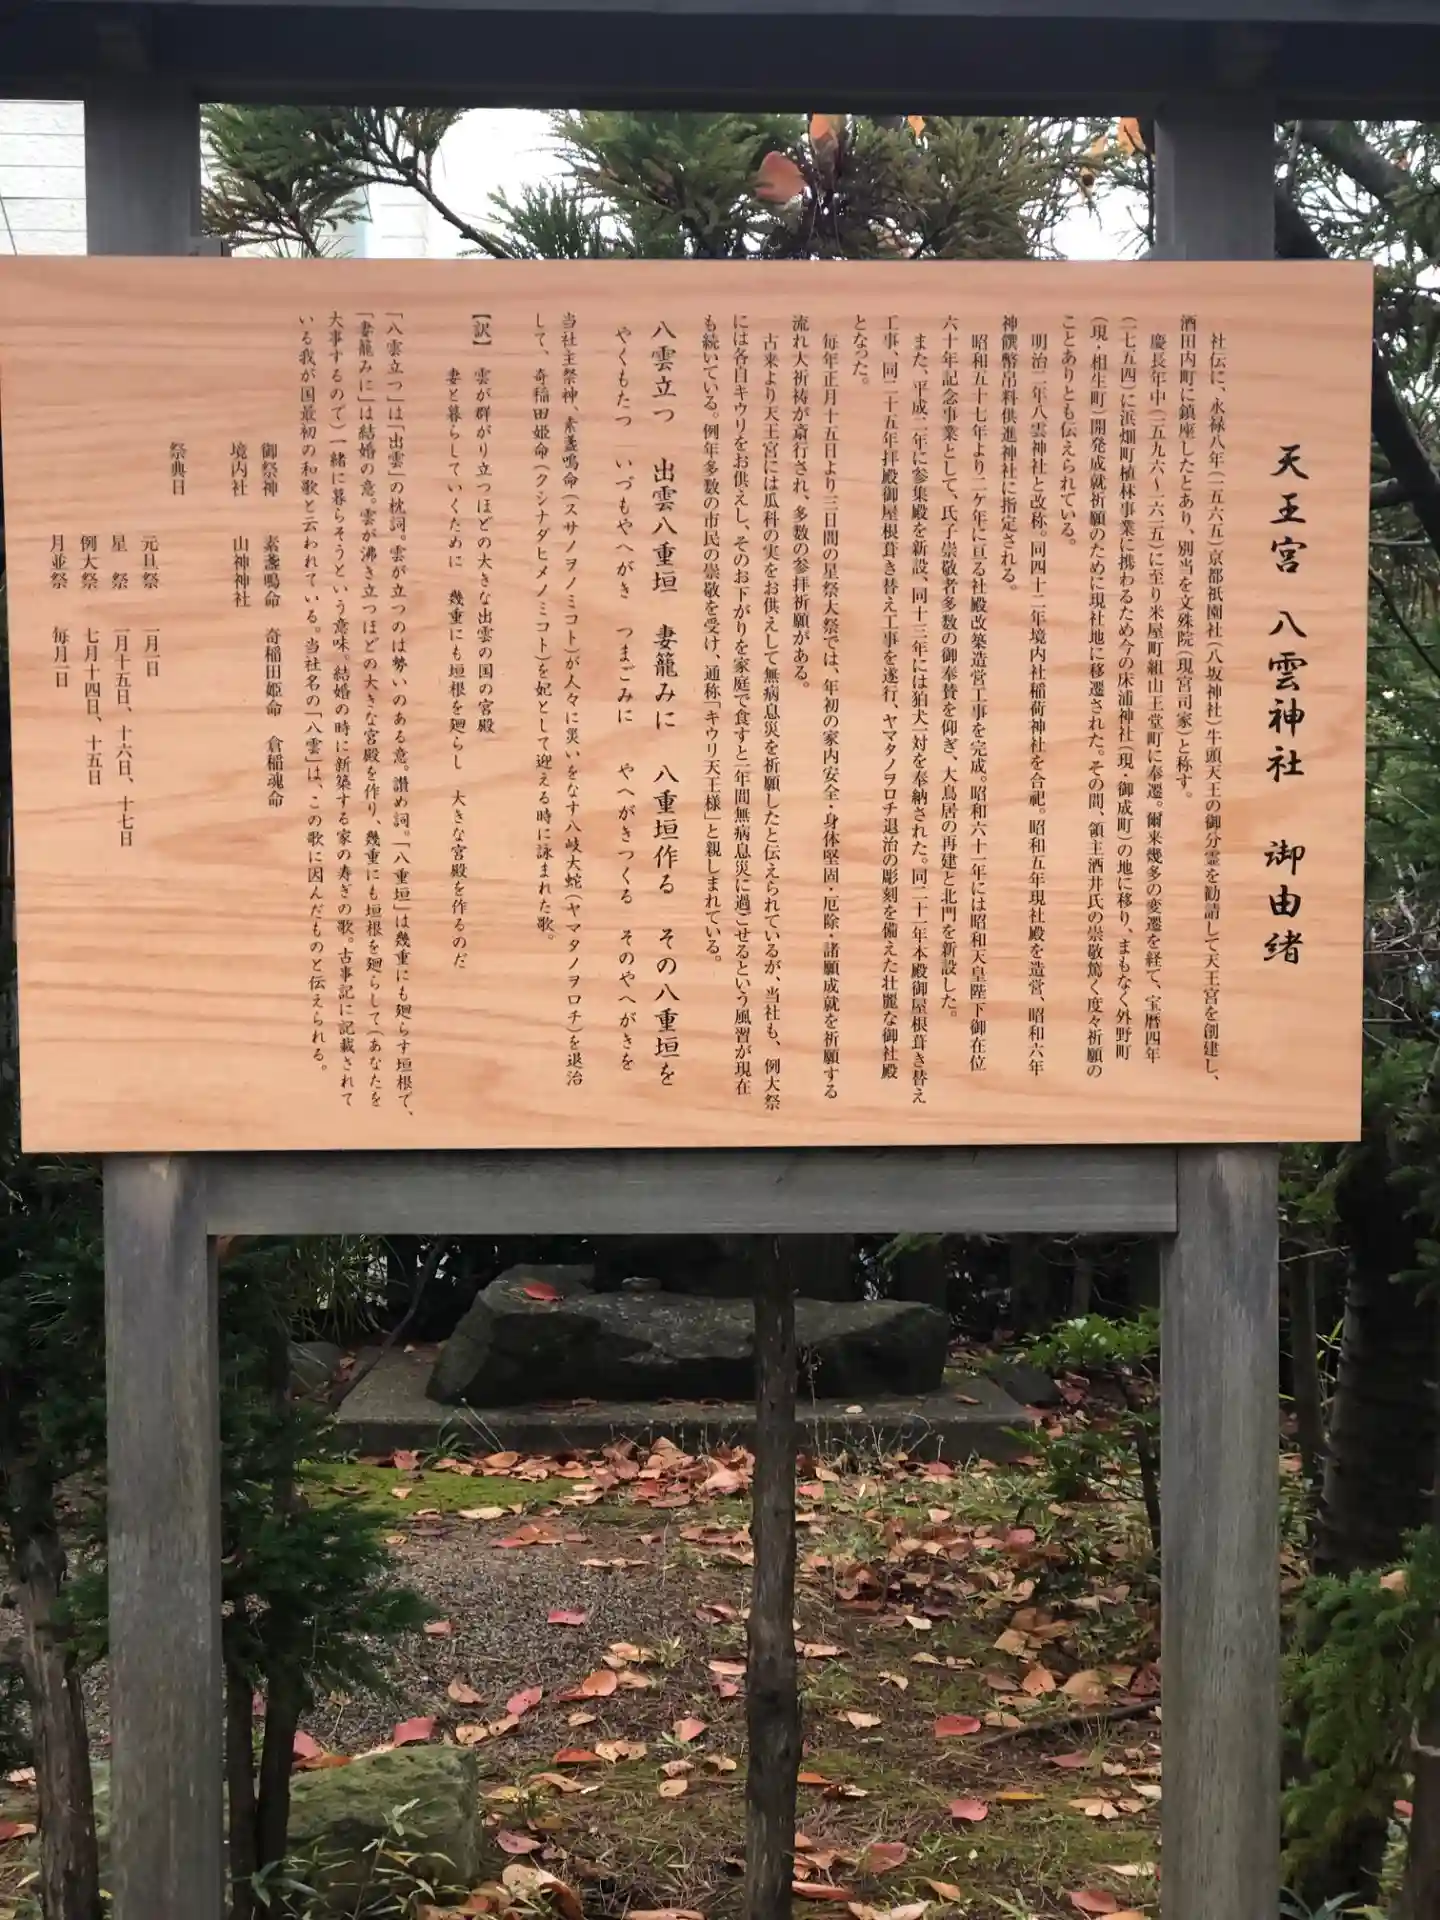 天王宮 八雲神社 御由緒
社伝に、永禄八年(一五六五)京都祇園社(八坂神社)牛頭天王の御分霊を勧請して天王宮を創建し、
酒田内町に鎮座したとあり、別当を文殊院(現宮司家)と称す。
慶長年中(一五九六～一六一五)に至り米屋町組山王堂町に奉遷。爾来幾多の変遷を経て、宝暦四年
(一七五四)に浜畑町植林事業に携わるため今の床浦神社(現・御成町)の地に移り、まもなく外野町
(現・相生町)開発成就祈願のために現社地に移遷された。その間、領主酒井氏の崇敬篤く度々祈願の
ことありとも伝えられている。
明治二年八雲神社と改称。同四十二年境内社稲荷神社を合祀。昭和五年現社殿を造営、昭和六年
神饌幣帛料供進神社に指定される。
昭和五十七年より二ケ年に亘る社殿改築造営工事を完成。昭和六十一年には昭和天皇陛下御在位
六十年記念事業として、氏子崇敬者多数の御奉賛を仰ぎ、大鳥居の再建と北門を新設した。
また、平成二年に参集殿を新設、同十三年には狛犬一対を奉納された。同二十一年本殿御屋根葺き替え
工事、同二十五年拝殿御屋根葺き替え工事を遂行、ヤマタノヲロチ退治の彫刻を備えた壮麗な御社殿
となった。
毎年正月十五日より三日間の星祭大祭では、年初の家内安全・身体堅固・厄除・諸願成就を祈願する
流れ大祈祷が斎行され、多数の参拝祈願がある。
古来より天王宮には瓜科の実をお供えして無病息災を祈願したと伝えられているが、当社も、例大祭
には各自キウリをお供えし、そのお下がりを家庭で食すと一年間無病息災に過ごせるという風習が現在
も続いている。例年多数の市民の崇敬を受け、通称「キウリ天王様」と親しまれている。
八雲立つ 出雲八重垣 妻籠みに 八重垣作る その八重垣を
やくもたつ いづもやへがき つまごみに やへがきつくる そのやへがきを
当社主祭神、素盞嗚命(スサノヲノミコト)が人々に災いをなす八岐大蛇(ヤマタノヲロチ)を退治
して、奇稲田姫命(クシナダヒメノミコト)を妃として迎える時に詠まれた歌。
【訳】 雲が群がり立つほどの大きな出雲の国の宮殿
妻と暮らしていくために 幾重にも垣根を廻らし 大きな宮殿を作るのだ
「八雲立つ」は「出雲」の枕詞。雲が立つのは勢いのある意。讃め詞。「八重垣」は幾重にも廻らす垣根で、
「妻籠みに」は結婚の意。雲が沸き立つほどの大きな宮殿を作り、幾重にも垣根を廻らして(あなたを
大事するので)一緒に暮らそうという意味。結婚の時に新築する家の寿ぎの歌。古事記に記載されて
いる我が国最初の和歌と云われている。当社名の「八雲」は、この歌に因んだものと伝えられる。
御祭神 素盞嗚命 奇稲田姫命 倉稲魂命
境内社 山神神社
祭典日
元旦祭 一月一日
星 祭 一月十五日、十六日、十七日
例大祭 七月十四日、十五日
月並祭 毎月一日